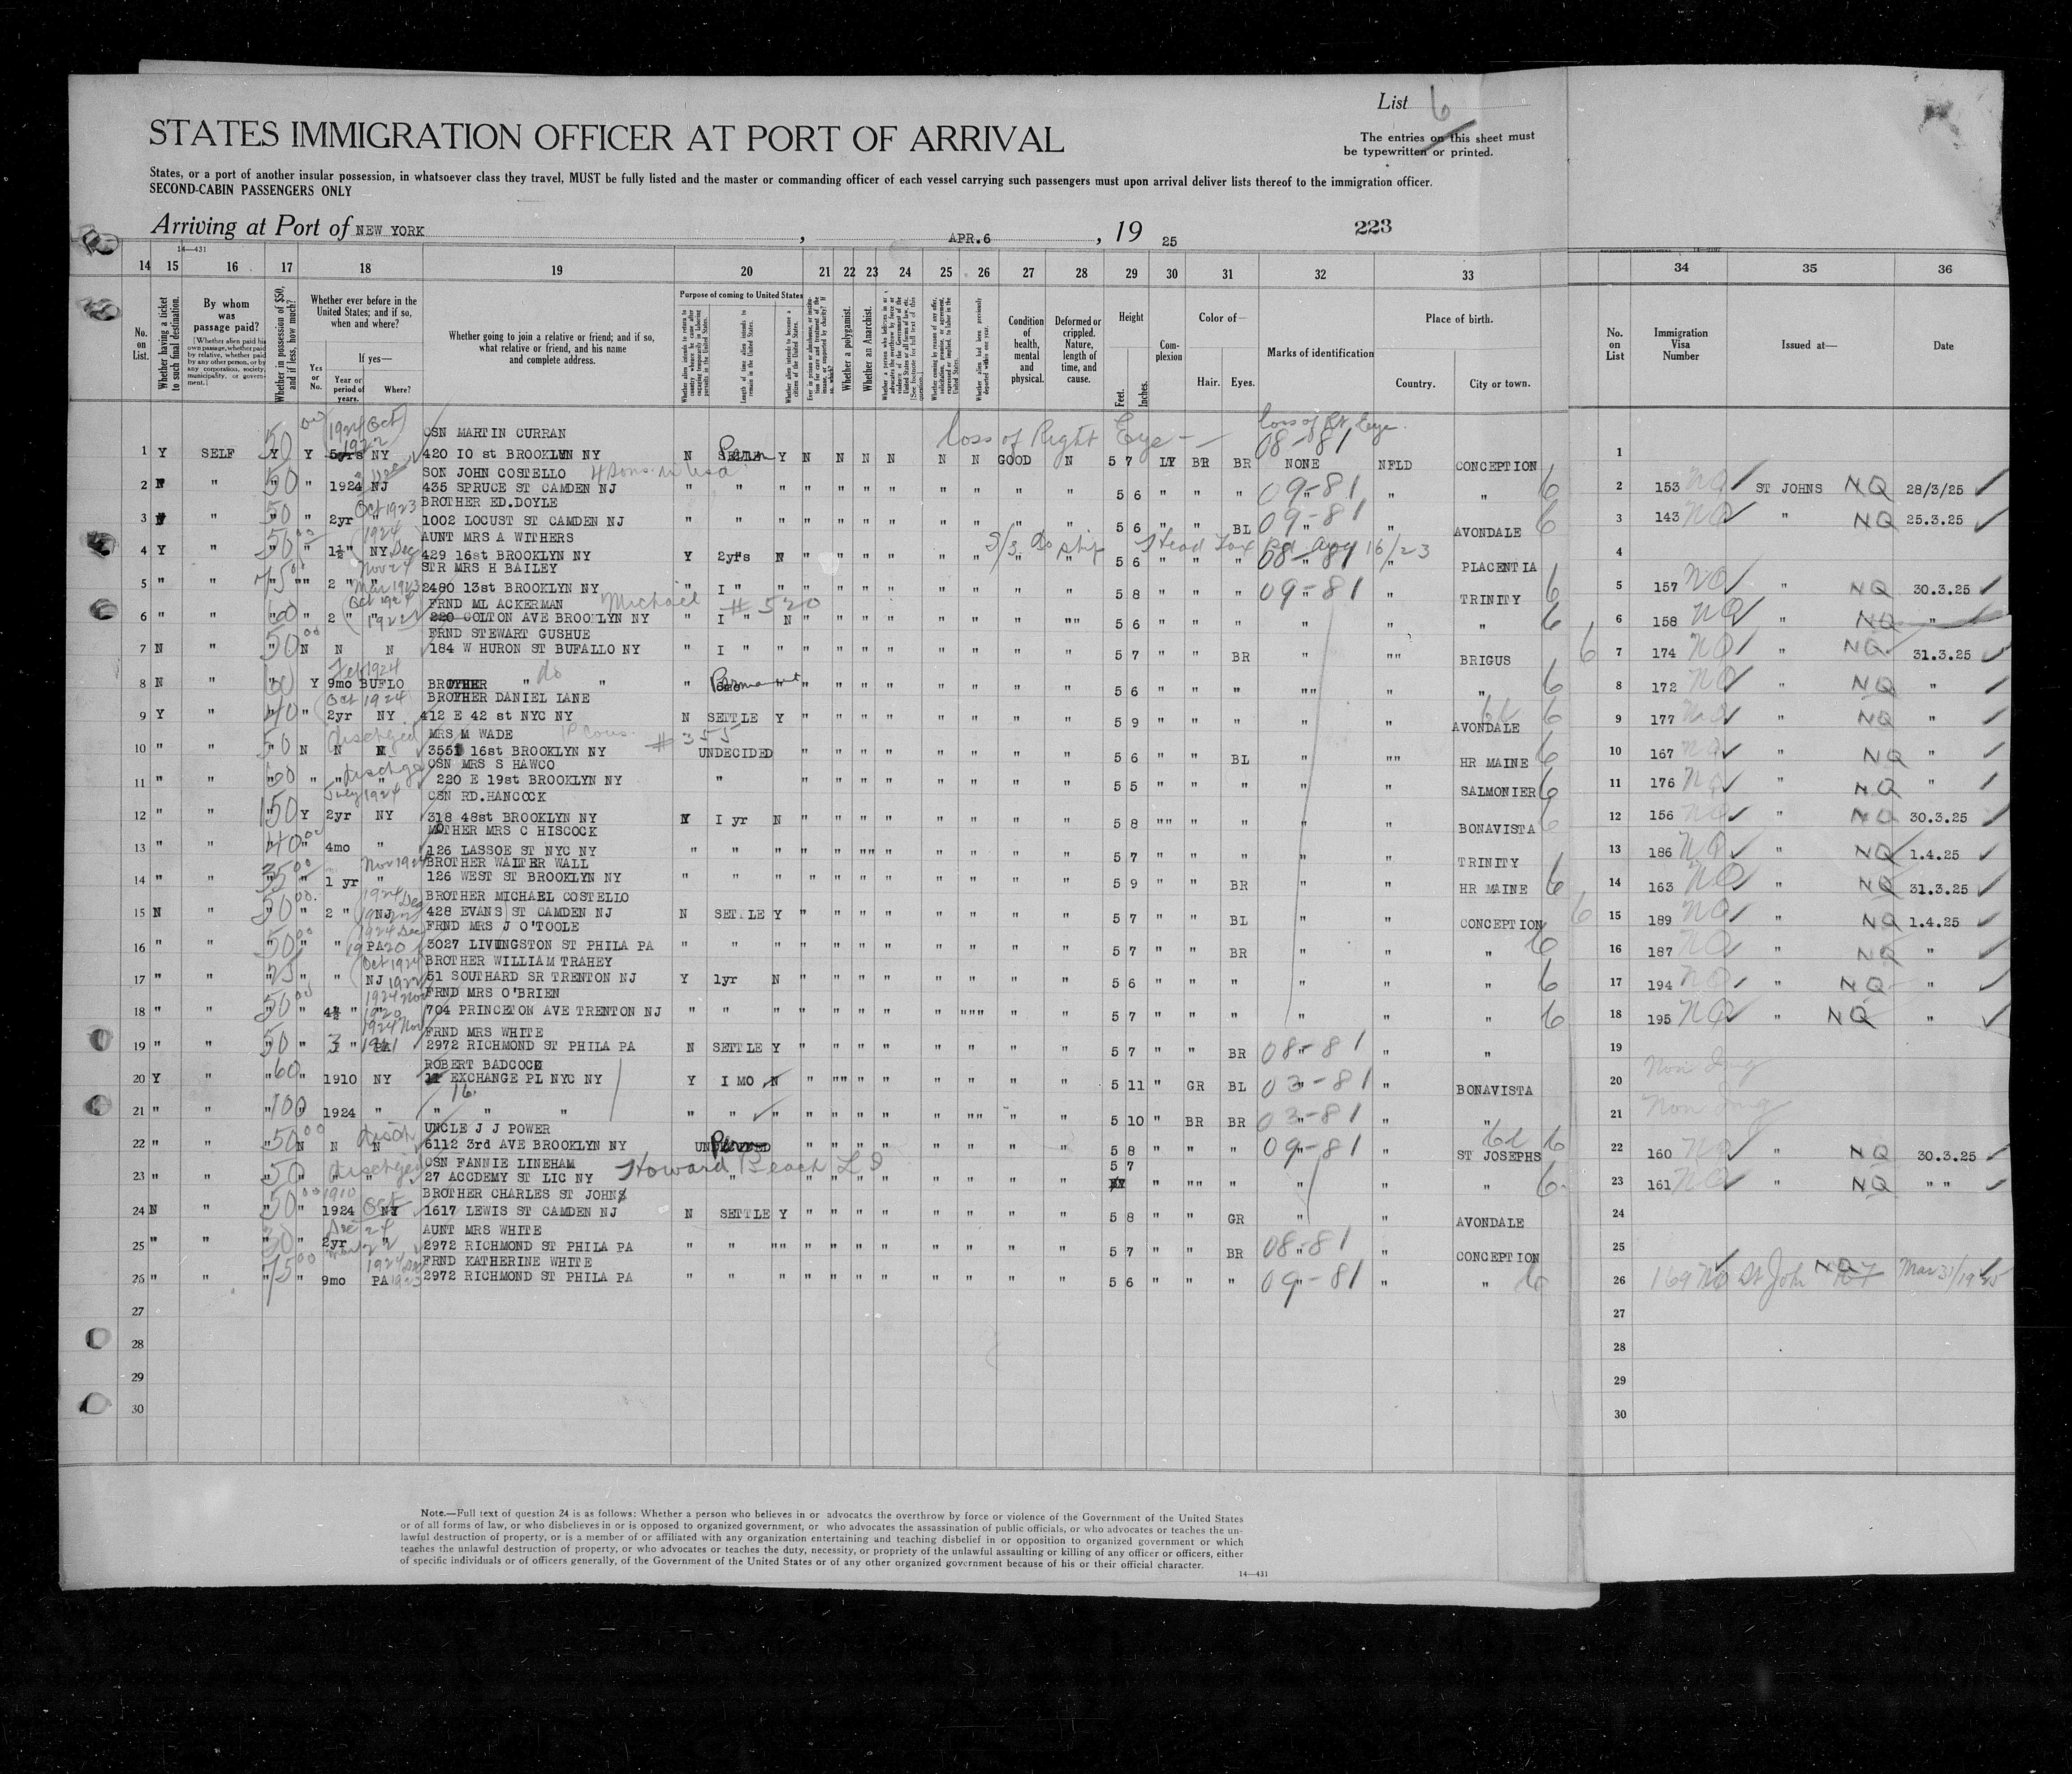 List 6
STATES IMMIGRATION OFFICER AT PORT OF ARRIVAL
The entries on this sheet must
be typewritten or printed.
States, or a port of another insular possession, in whatsoever class they travel, MUST be fully listed and the master or commanding officer of each vessel carrying such passengers must upon arrival deliver lists thereof to the immigration officer.
SECOND-CABIN PASSENGERS ONLY
Arriving at Port of NEW YORK, APR. 6, 19 25 223
14—431
14 15 16 17 18 19 20 21 22 23 24 25 26 27 28 29 30 31 32 33 34 35 36
No. on List.
Whether having a ticket to such final destination.
By whom was passage paid?
Whether in possession of $50, and if less, how much?
Whether ever before in the United States; and if so, when and where?
Yes or No.
If yes—
Year or period of years.
Where?
Whether going to join a relative or friend; and if so, what relative or friend, and his name and complete address.
Purpose of coming to United States
Whether a polygamist.
Whether an Anarchist.
Condition of health, mental and physical.
Deformed or crippled. Nature, length of time, and cause.
Height
Feet. Inches.
Complexion
Color of—
Hair. Eyes.
Marks of identification
Place of birth.
Country. City or town.
No. on List
Immigration Visa Number
Issued at—
Date
CSN MARTIN CURRAN loss of Right Eye - loss of Rt Eye.
1 Y SELF Y Y 5yrs NY 420 IO st BROOKLYN NY N SETTLE Y N N N N N N GOOD N 5 7 LT BR BR NONE 08-81 NFLD CONCEPTION 1
SON JOHN COSTELLO 4 Sons in USA
2 N " 50 " 1924 NJ 435 SPRUCE ST CAMDEN NJ " " " " " " " " " " " 5 6 " " " 09-81 " " 6 2 153 NQ ST JOHNS NQ 28/3/25
BROTHER ED.DOYLE
3 N " 50 " 2yr " Oct 1923 1002 LOCUST ST CAMDEN NJ " " " " " " " " " " " 5 6 " " BL 09-81 " AVONDALE 6 3 143 NQ " NQ 25.3.25
AUNT MRS A WITHERS
4 Y " 50 " 1½" NY 429 16st BROOKLYN NY Y 2yrs N " " " " " " " " 5 6 " " " 08-81 " PLACENTIA 4
STR MRS H BAILEY
5 " " 75 "" 2 " " 2480 13st BROOKLYN NY " I " " " " " " " " " " 5 8 " " " 09-81 " TRINITY 6 5 157 NQ " NQ 30.3.25
FRND ML ACKERMAN Michael # 520
6 " " 60 " 2 " " 220 COLTON AVE BROOKLYN NY " I " N " " " " " " " "" 5 6 " " " " " " 6 6 158 NQ " NQ "
FRND STEWART GUSHUE
7 N " 50 N N N 184 W HURON ST BUFALLO NY " I " " " " " " " " " " 5 7 " " BR " "" BRIGUS 6 7 174 NQ " NQ 31.3.25
8 N " 60 Y 9mo BUFLO Feb 1924 BROTHER " do " " Permanent " " " " " " " " " 5 6 " " " "" " " 6 8 172 NQ " NQ "
BROTHER DANIEL LANE
9 Y " 40 " 2yr NY Oct 1924 412 E 42 st NYC NY N SETTLE Y " " " " " " " " 5 9 " " " " " AVONDALE 6 9 177 NQ " NQ "
MRS M WADE # 355
10 " " 50 N N N 3551 16st BROOKLYN NY UNDECIDED " " " " " " " " 5 6 " " BL " "" HR MAINE 6 10 167 NQ " NQ "
CSN MRS S HAWCO
11 " " 60 " " " 220 E 19st BROOKLYN NY " " " " " " " " " 5 5 " " " " " SALMONIER 6 11 176 NQ " NQ "
CSN RD.HANCOCK
12 " " 150 Y 2yr NY July 1924 318 48st BROOKLYN NY Y I yr N " " " " " " " " 5 8 "" " " " " BONAVISTA 6 12 156 NQ " NQ 30.3.25
MOTHER MRS C HISCOCK
13 " " 40 " 4mo " 126 LASSOE ST NYC NY " " " " " "" " " " " " 5 7 " " " " " TRINITY 13 186 NQ " NQ 1.4.25
BROTHER WALTER WALL
14 " " 35 " 1 yr " Nov 1924 126 WEST ST BROOKLYN NY " " " " " " " " " " " 5 9 " " BR " " HR MAINE 6 14 163 NQ " NQ 31.3.25
BROTHER MICHAEL COSTELLO
15 N " 50 " 2 " NJ 428 EVANS ST CAMDEN NJ N SETTLE Y " " " " " " " " 5 7 " " BL " " CONCEPTION 6 15 189 NQ " NQ 1.4.25
FRND MRS J O'TOOLE
16 " " 50 " " PA 3027 LIVINGSTON ST PHILA PA " " " " " " " " " " " 5 7 " " BR " " " 6 16 187 NQ " NQ "
BROTHER WILLIAM TRAHEY
17 " " 25 " " NJ 51 SOUTHARD SR TRENTON NJ Y 1yr N " " " " " " " " 5 6 " " " " " " 6 17 194 NQ " NQ "
FRND MRS O'BRIEN
18 " " 50 " 4½ " " 704 PRINCETON AVE TRENTON NJ " " " " " " " " """ " " 5 7 " " " " " " 6 18 195 NQ " NQ "
FRND MRS WHITE
19 " " 50 " 3 " PA 2972 RICHMOND ST PHILA PA N SETTLE Y " " " " " " " " 5 7 " " BR 08-81 " " 19
ROBERT BADCOCK
20 Y " 60 " 1910 NY 11 EXCHANGE PL NYC NY Y I MO N " "" " " " " " " 5 11 " GR BL 03-81 " BONAVISTA 20 Non Img
16.
21 " " 100 " 1924 " " " " " " " " " " " " "" " " 5 10 " BR BR 03-81 " " 21 Non Img
UNCLE J J POWER
22 " " 50 N N N 6112 3rd AVE BROOKLYN NY UNDECIDED " " " " " " " " 5 8 " " " 09-81 " ST JOSEPHS 6 22 160 NQ " NQ 30.3.25
CSN FANNIE LINEHAM Howard Beach L I
23 " " 50 " " " 27 ACCDEMY ST LIC NY " " " " " " " " " 5 7 " "" " " " " 6 23 161 NQ " NQ " "
BROTHER CHARLES ST JOHNS
24 N " 50 " 1924 NY 1617 LEWIS ST CAMDEN NJ N SETTLE Y " " " " " " " " 5 8 " " GR " " AVONDALE 24
AUNT MRS WHITE
25 " " 50 " 2yr " 2972 RICHMOND ST PHILA PA " " "" " " " " " " " " 5 7 " " BR 08-81 " CONCEPTION 25
FRND KATHERINE WHITE
26 " " 75 " 9mo PA 2972 RICHMOND ST PHILA PA " " " " " " " " " " " 5 6 " " " 09-81 " " 6 26 169 NQ St John NQ Mar 31/1925
27 27
28 28
29 29
30 30
Note.—Full text of question 24 is as follows: Whether a person who believes in or advocates the overthrow by force or violence of the Government of the United States
or of all forms of law, or who disbelieves in or is opposed to organized government, or who advocates the assassination of public officials, or who advocates or teaches the un-
lawful destruction of property, or is a member of or affiliated with any organization entertaining and teaching disbelief in or opposition to organized government or which
teaches the unlawful destruction of property, or who advocates or teaches the duty, necessity, or propriety of the unlawful assaulting or killing of any officer or officers, either
of specific individuals or of officers generally, of the Government of the United States or of any other organized government because of his or their official character.
14—431